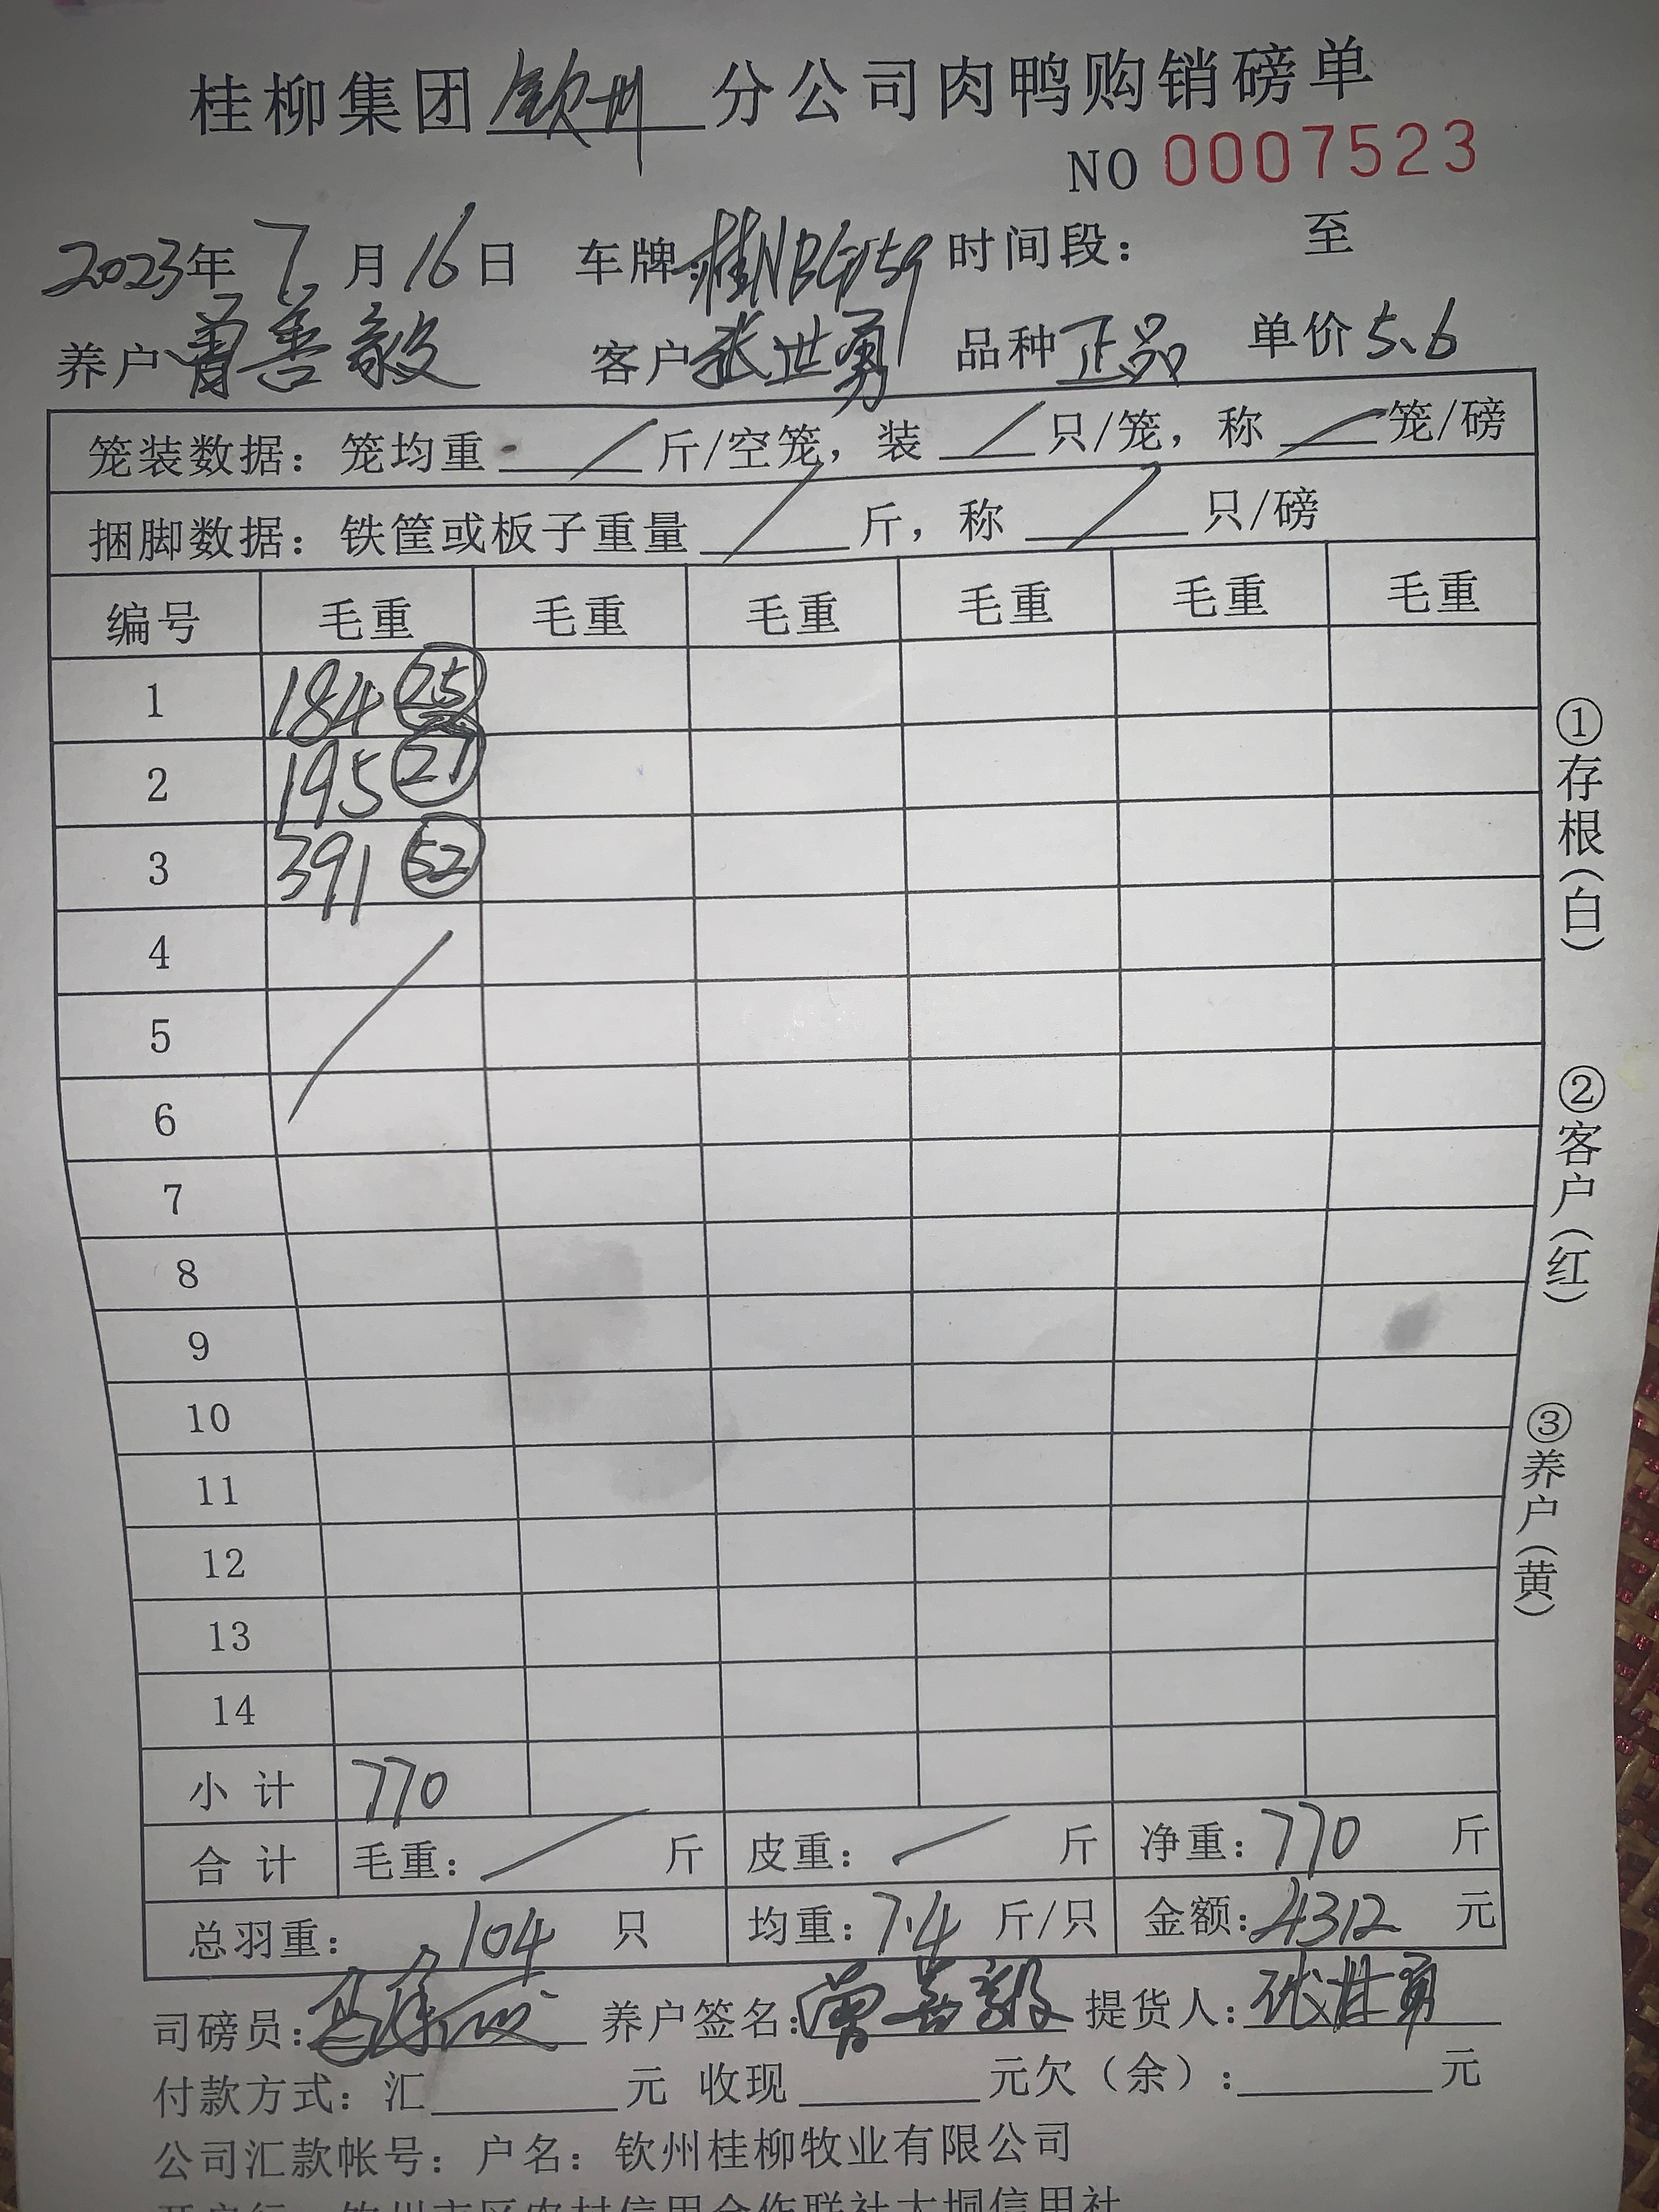 桂柳集团钦州分公司肉鸭购销磅单
NO 0007523
2023年7月16日 车牌:桂NBG159 时间段： 至
养户曾善毅 客户张世勇 品种正品 单价5.6
笼装数据：笼均重 / 斤/空笼，装 / 只/笼，称 / 笼/磅
捆脚数据：铁筐或板子重量 / 斤，称 / 只/磅
编号 毛重 毛重 毛重 毛重 毛重 毛重
1 184 25
2 195 27
3 391 52
4
5
6
7
8
9
10
11
12
13
14
小计 770
合计 毛重： / 斤 皮重： / 斤 净重：770 斤
总羽重： 104 只 均重：7.4 斤/只 金额：4312 元
司磅员： 养户签名：曾善毅 提货人：张世勇
付款方式：汇 元 收现 元欠（余）： 元
公司汇款帐号：户名：钦州桂柳牧业有限公司
开户行：钦州市区农村信用合作联社大垌信用社
①存根（白）
②客户（红）
③养户（黄）